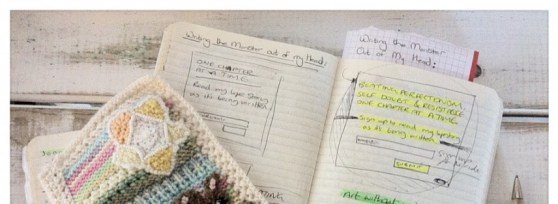 Writing the Monster out of my Head:
ONE CHAPTER
at A TIME.
Read my life story
as it's being written
Writing the Monster
Out of My Head:
BEATING PERFECTIONISM,
SELF DOUBT & RESISTANCE
ONE CHAPTER AT A TIME.
Sign up to read my life story
as it's being written.
Art without